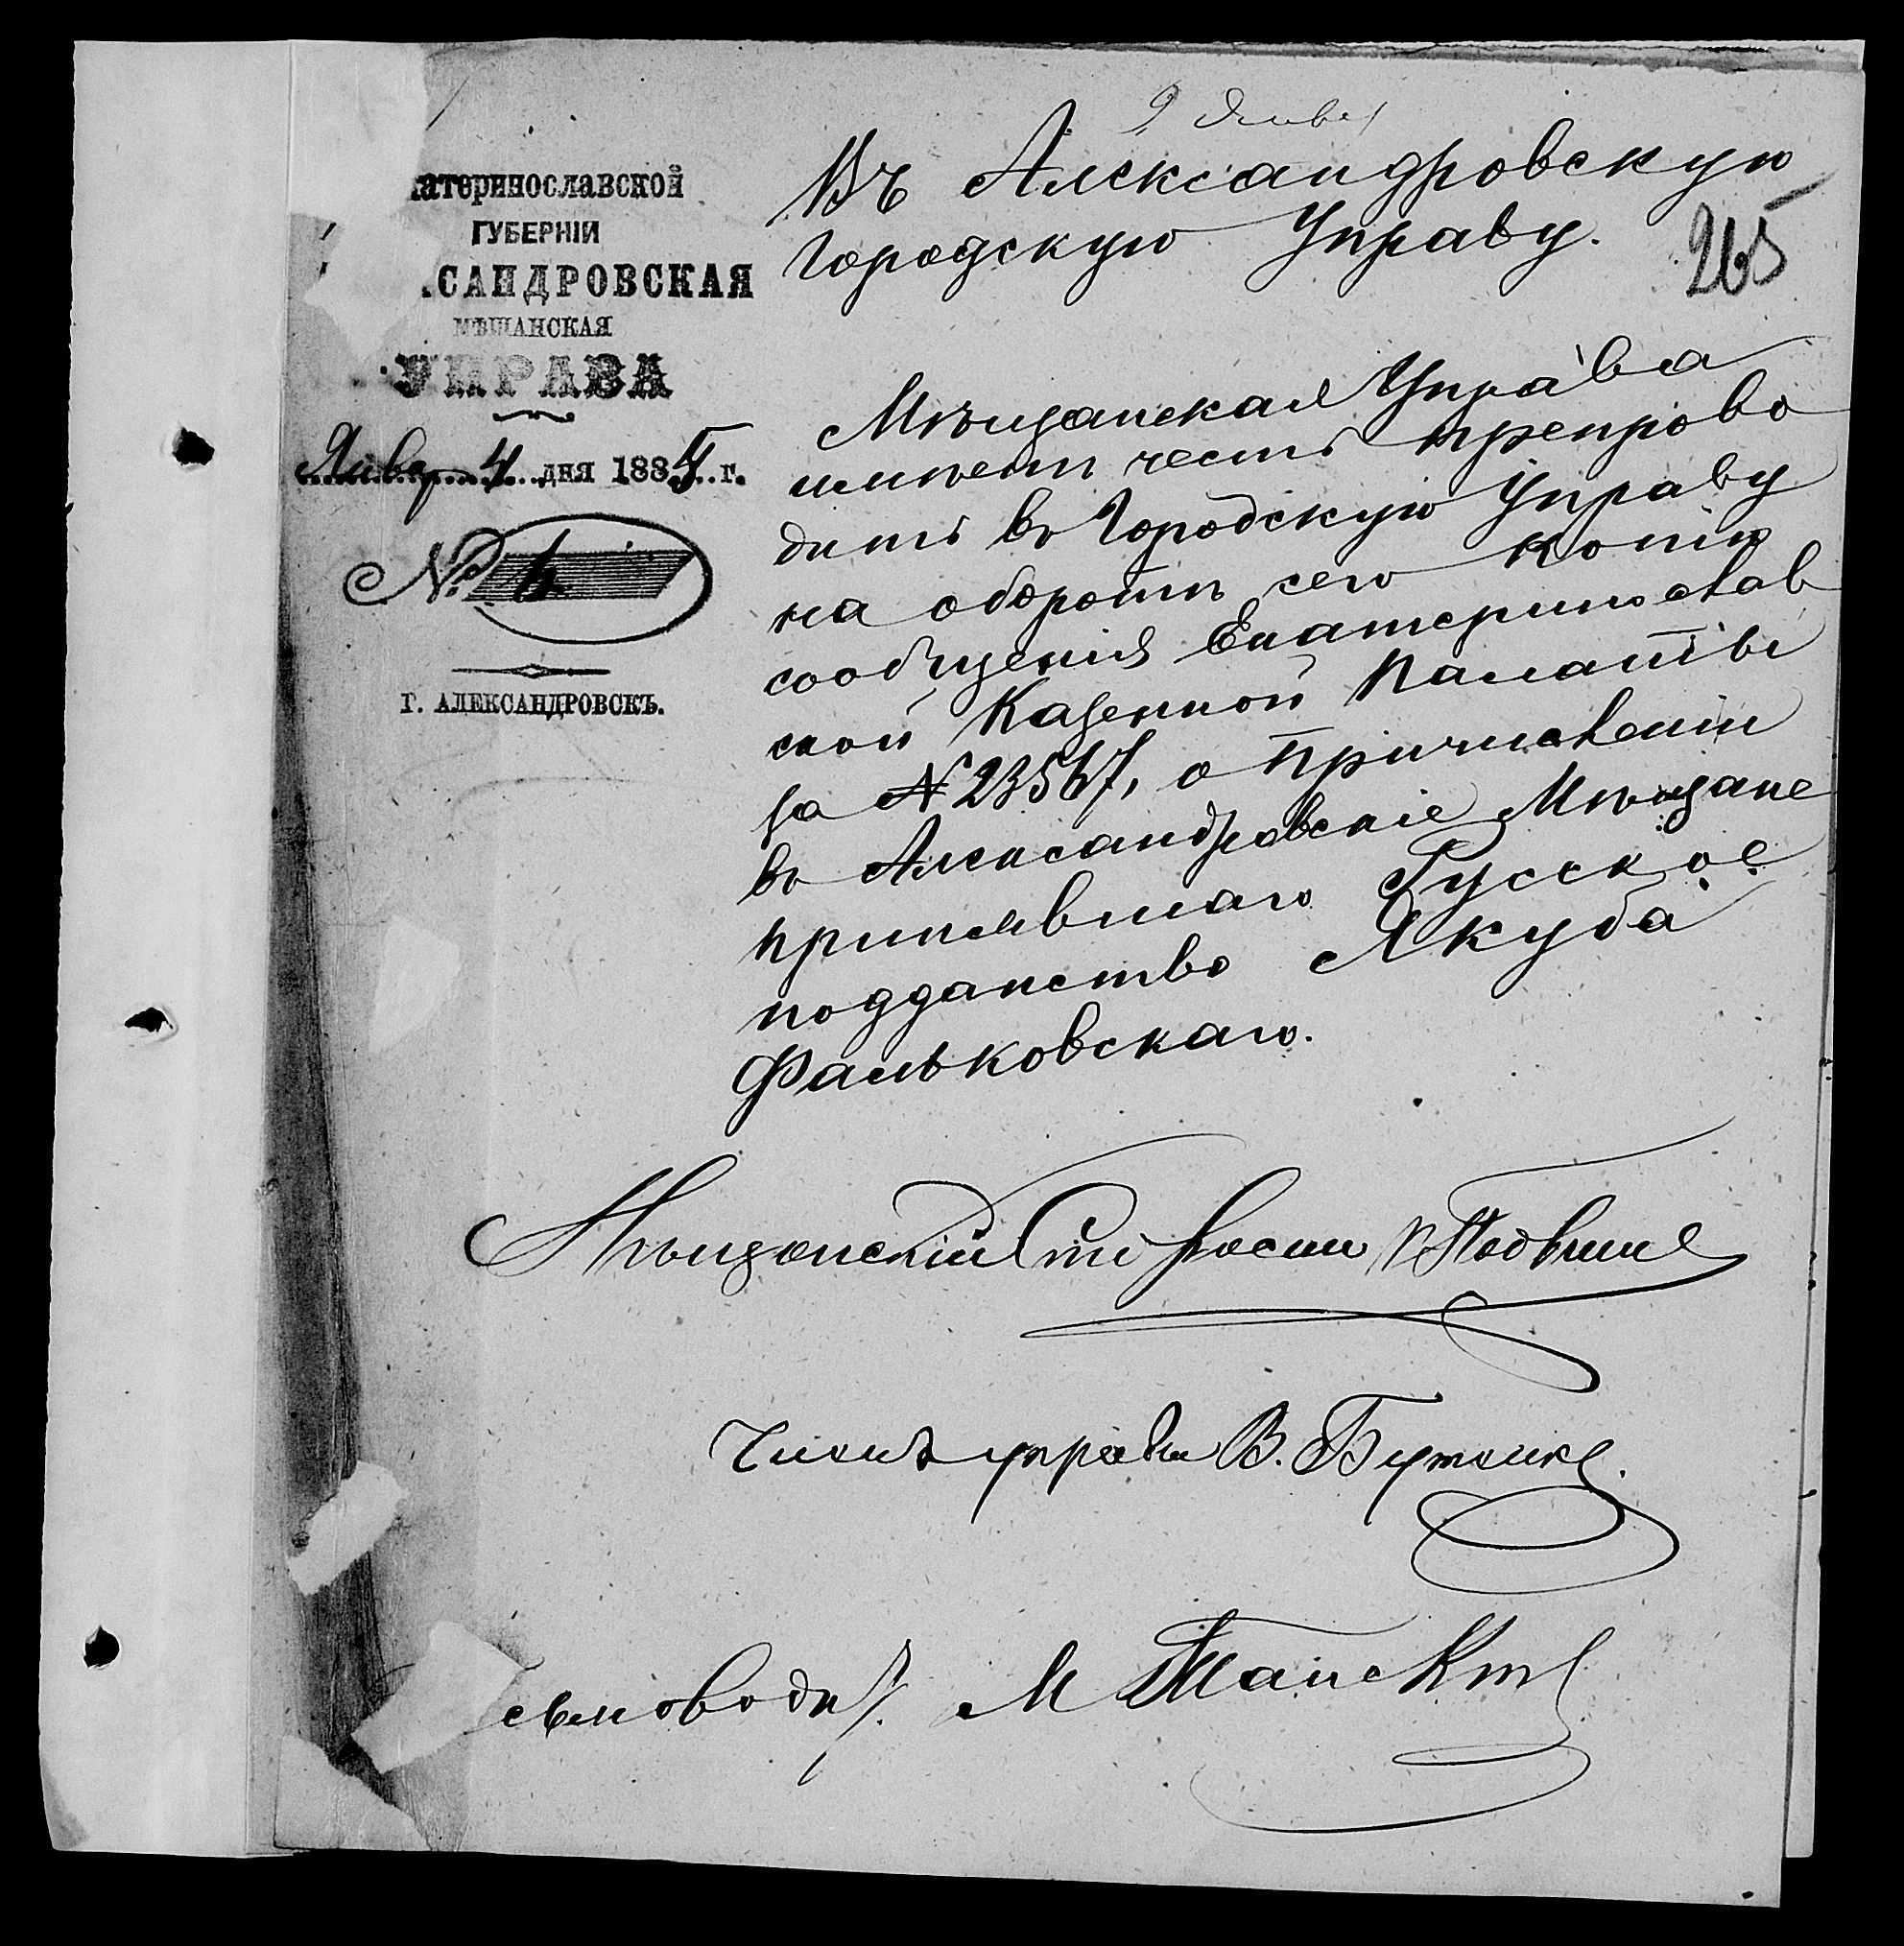 9 Янвр
катеринославской
ГУБЕРНІИ
САНДРОВСКАЯ
МѢЩАНСКАЯ
УПРАВА
Январ 4 дня 1885 г.
№ 6
Г. АЛЕКСАНДРОВСКЪ.
Въ Александровскую
Городскую Управу.
265
Мѣщанская Управа
имѣетъ честь препрово
дить въ Городскую Управу
на оборотѣ сего копію
сообщенія Екатеринослав
ской Казенной Палаты
за № 23567, о причисленіи
въ Александровскіе Мѣщане
принявшаго Русское
подданство Якуба
Фальковскаго.
Мѣщанскій Староста
Членъ управы В. Бутенко
сьмоводи
М